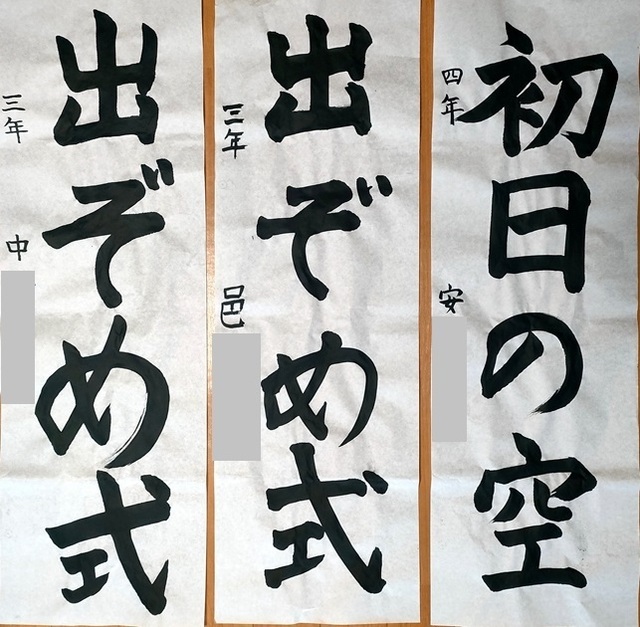 初日の空
四年
安
出ぞめ式
三年
邑
出ぞめ式
三年
中